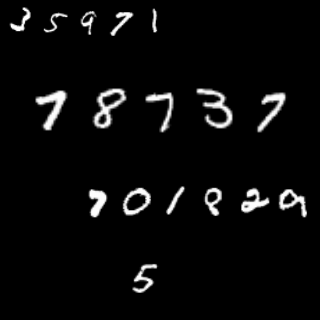 35971
78737
701829
5